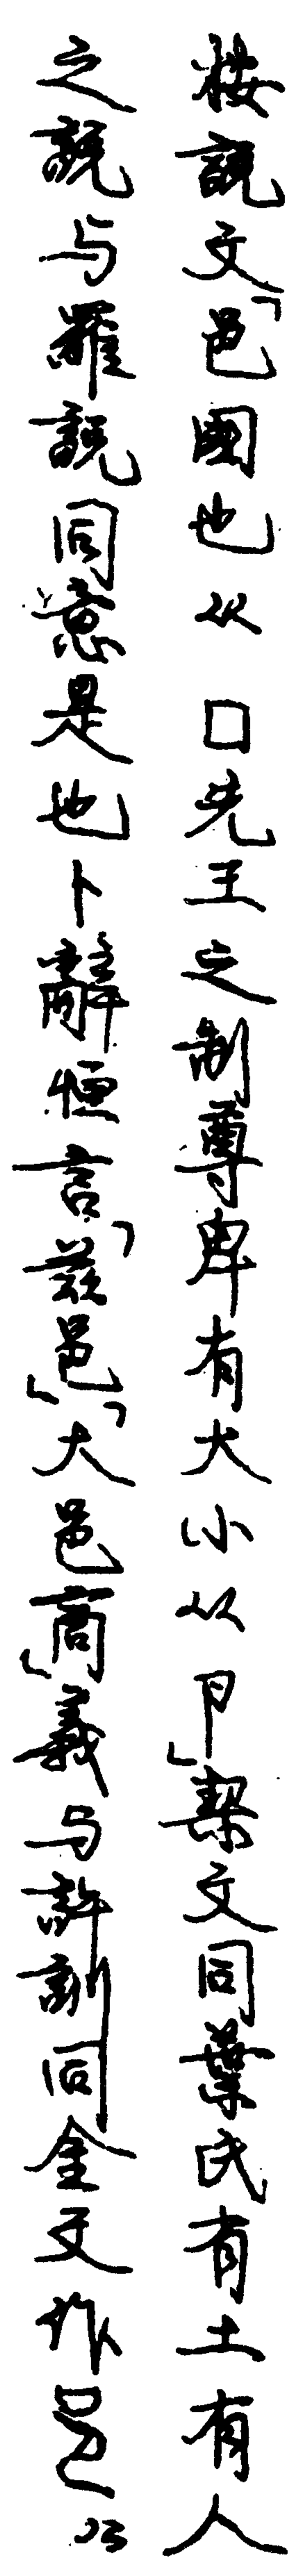 按說文「邑國也从囗先王之制尊卑有大小从卪」契文同葉氏有土有人
之說与羅說同意是也卜辭恒言「茲邑」「大邑商」義与許訓同金文作